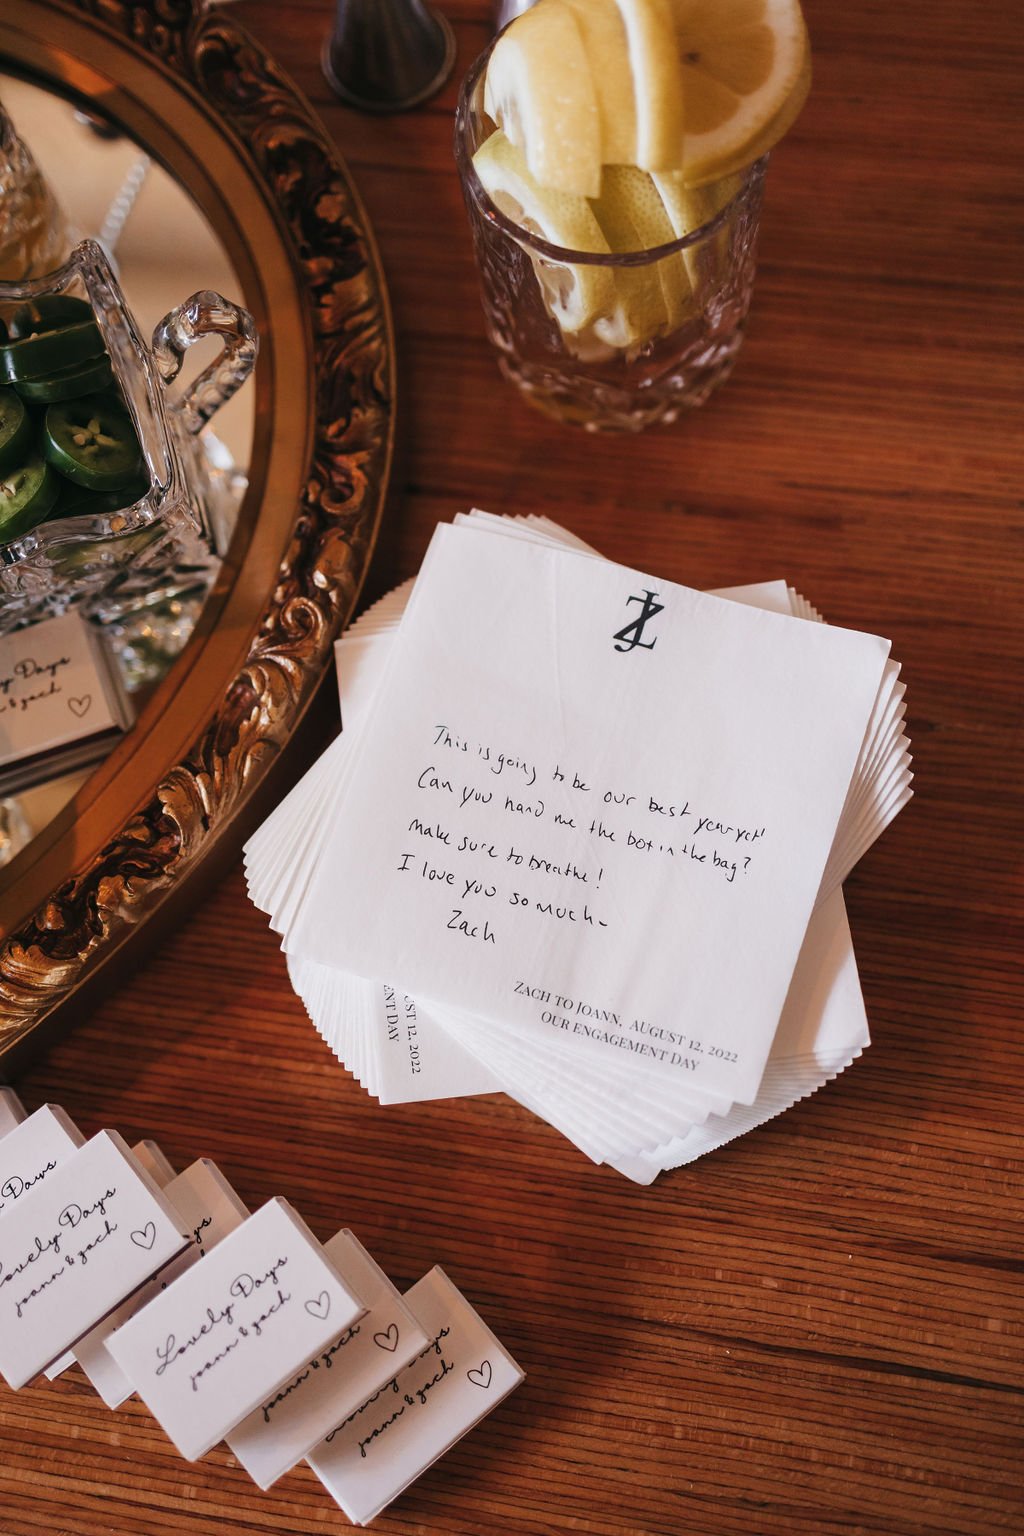 JZ
This is going to be our best year yet!
Can you hand me the box in the bag?
make sure to breathe!
I love you so much-
Zach
ZACH TO JOANN, AUGUST 12, 2022
OUR ENGAGEMENT DAY
UST 12, 2022
ENT DAY
y Days
& zach
Days
Lovely Days
joann & zach
ys
Lovely Days
joann & zach
joann & zach
ys
joann & zach